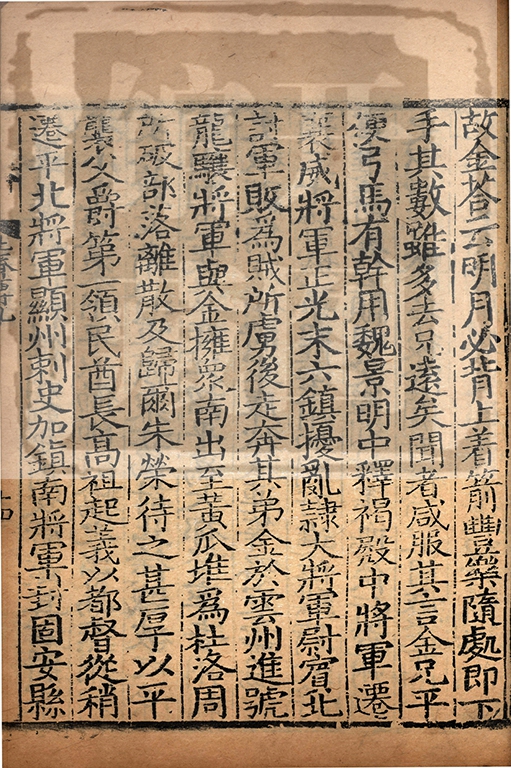 故金荅云明月必背上着箭豐樂隨處即下
手其數雖多去兄遠矣聞者咸服其言金兄平
便弓馬有幹用魏景明中釋褐殿中將軍遷
襄威將軍正光末六鎮擾亂隷大將軍尉賓北
討軍敗爲賊所虜後走奔其弟金於雲州進號
龍驤將軍與金擁衆南出至黃瓜堆爲杜洛周
所破部落離散及歸爾朱榮待之甚厚以平
襲父爵第一領民酋長高祖起義以都督從稍
遷平北將軍顯州刺史加鎮南將軍封固安縣
十四